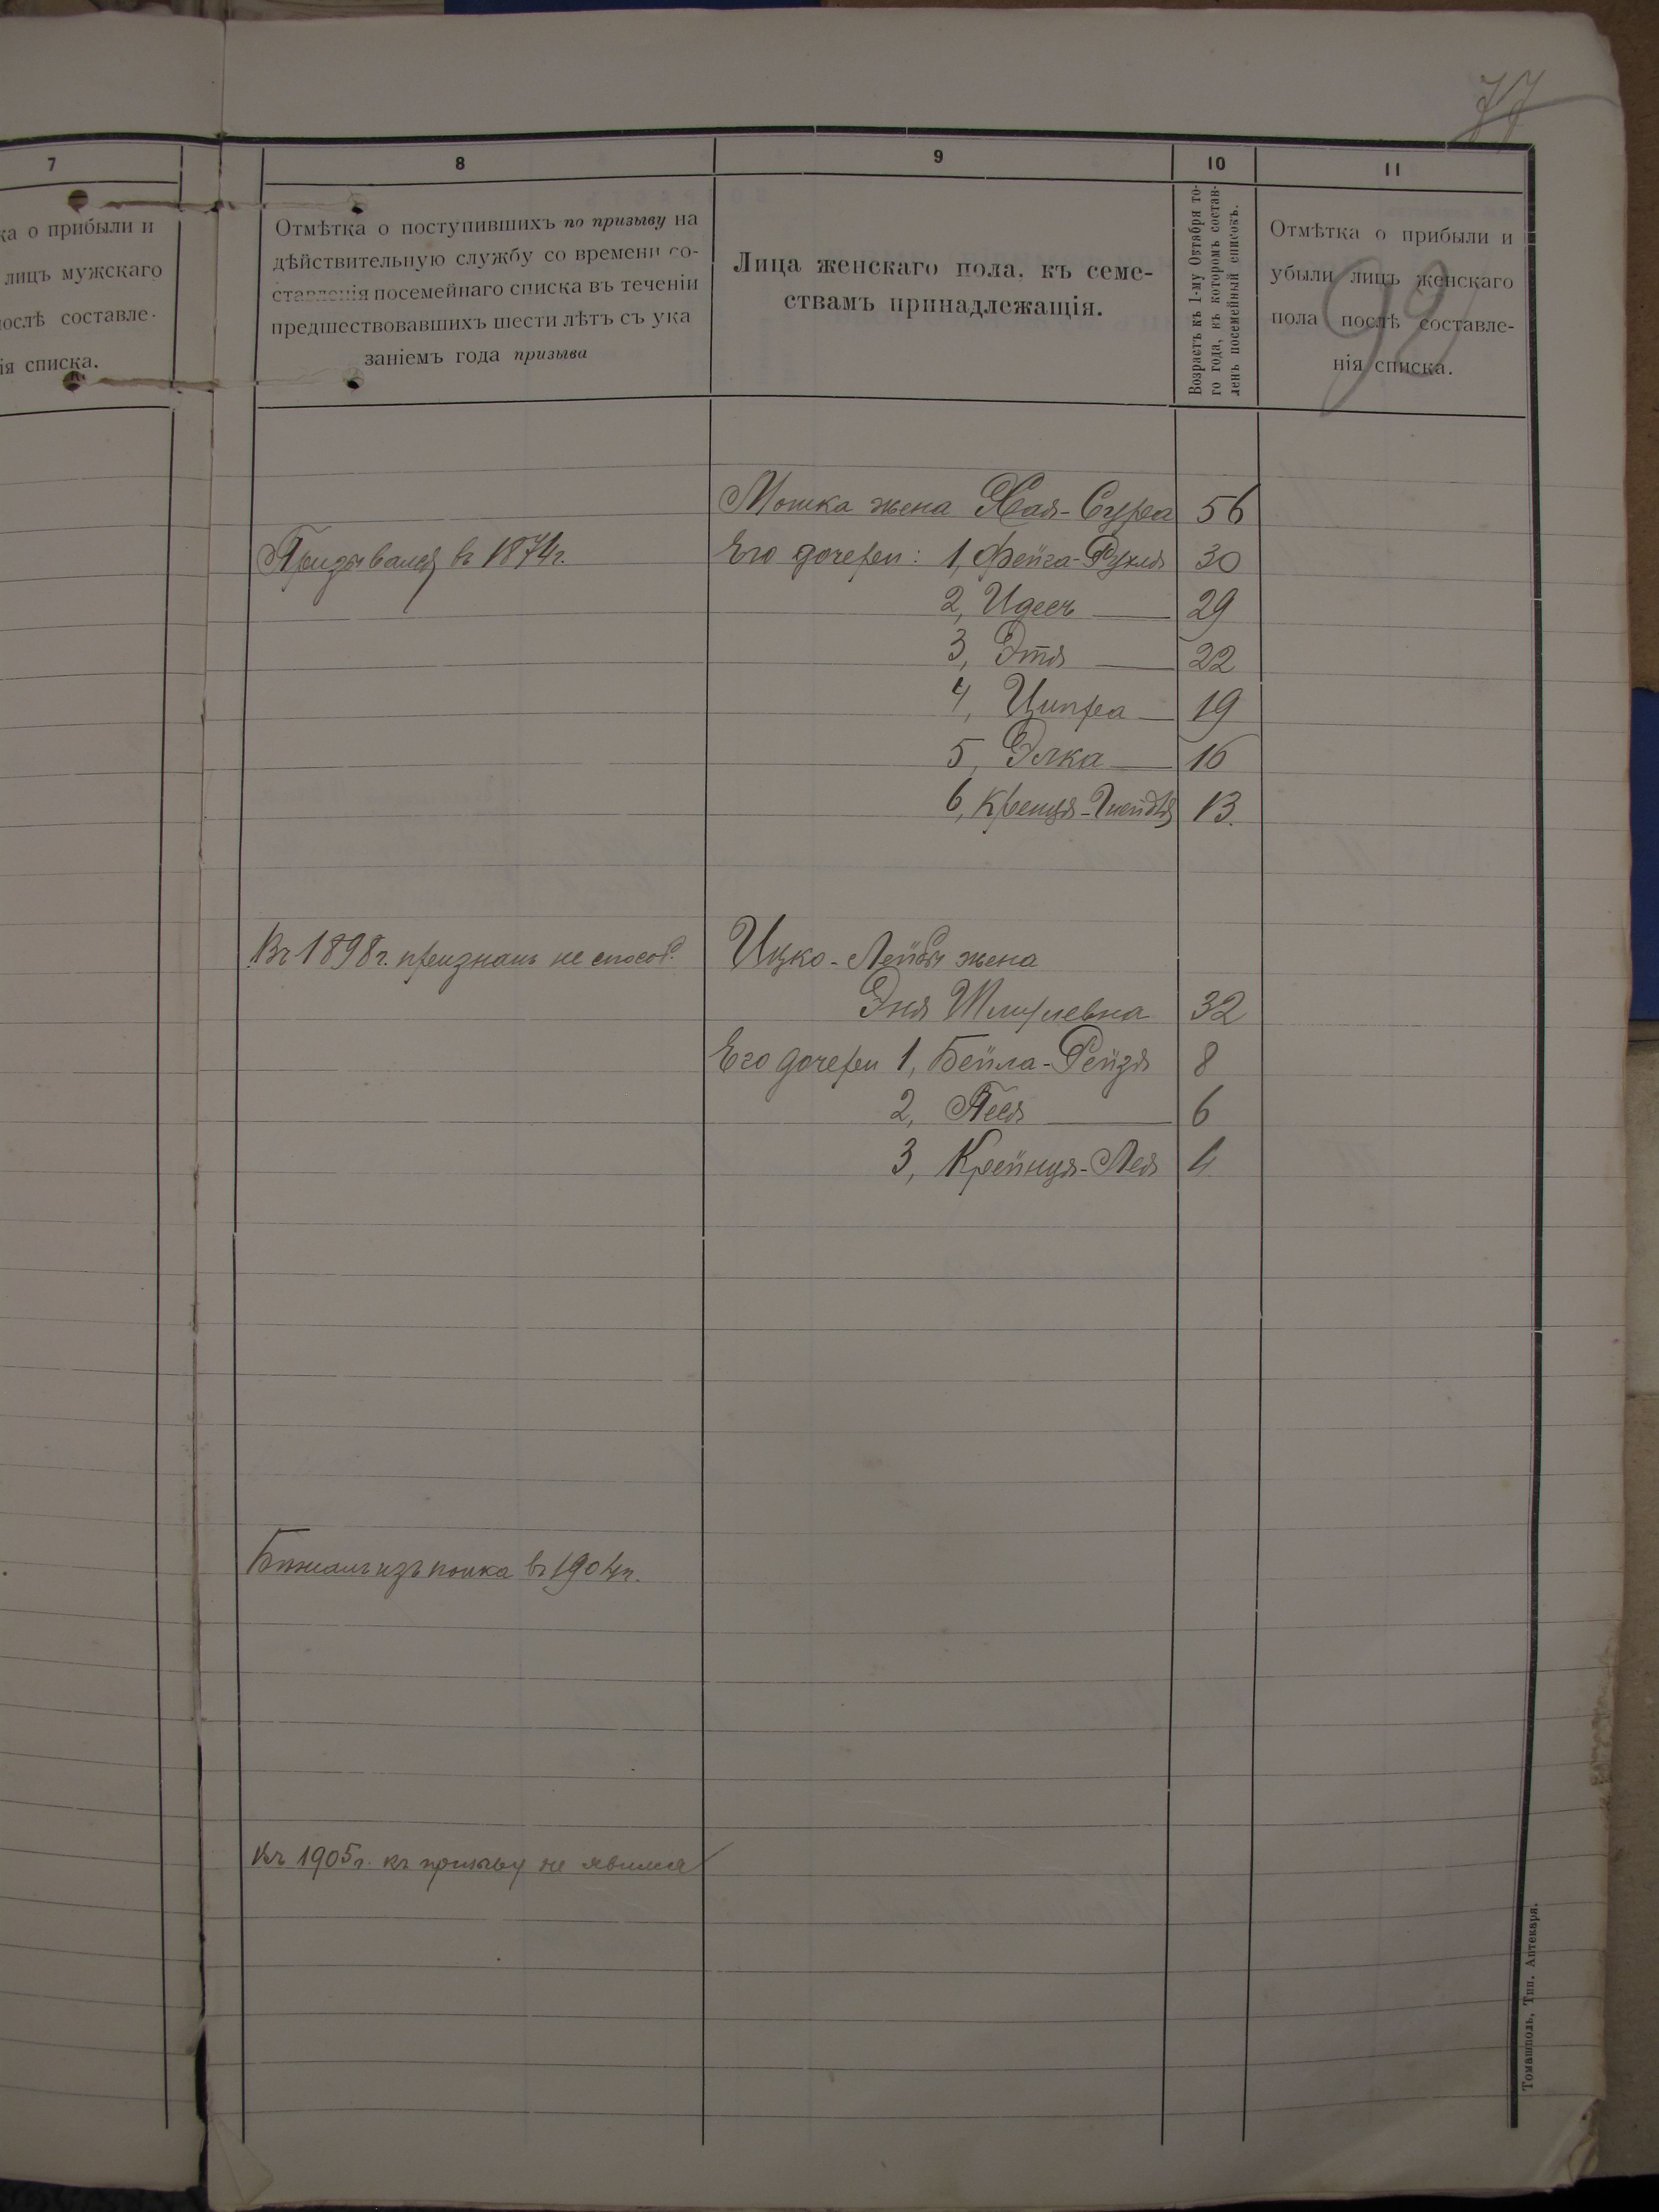 77
7
8
9
10
11
ка о прибыли и
лицъ мужскаго
послѣ составле-
нія списка.
Отмѣтка о поступившихъ по призыву на
дѣйствительную службу со времени со-
ставленія посемейнаго списка въ теченіи
предшествовавшихъ шести лѣтъ съ ука
заніемъ года призыва
Лица женскаго пола, къ семе-
ствамъ принадлежащія.
Возрастъ къ 1-му Октября то-
го года, въ которомъ состав-
ленъ посемейный списокъ.
Отмѣтка о прибыли и
убыли лицъ женскаго
пола послѣ составле-
нія списка.
92
Мошка жена Хая-Сура 56
Призывался въ 1874г.
Его дочери: 1, Фейга-Рухля 30
2, Идесъ 29
3, Этя 22
4, Ципра 19
5, Элка 16
6, Кренця-Гнендля 13.
Въ 1898г. признанъ не способ.
Ицко-Лейбы жена
Эня Шмулевна 32
Его дочери 1, Бейла-Рейзя 8
2, Песя 6
3, Крейнця-Лея 4
Бѣжалъ изъ полка въ 1904г.
Въ 1905г. къ призыву не явился
Томашполь, Тип. Аптекаря.